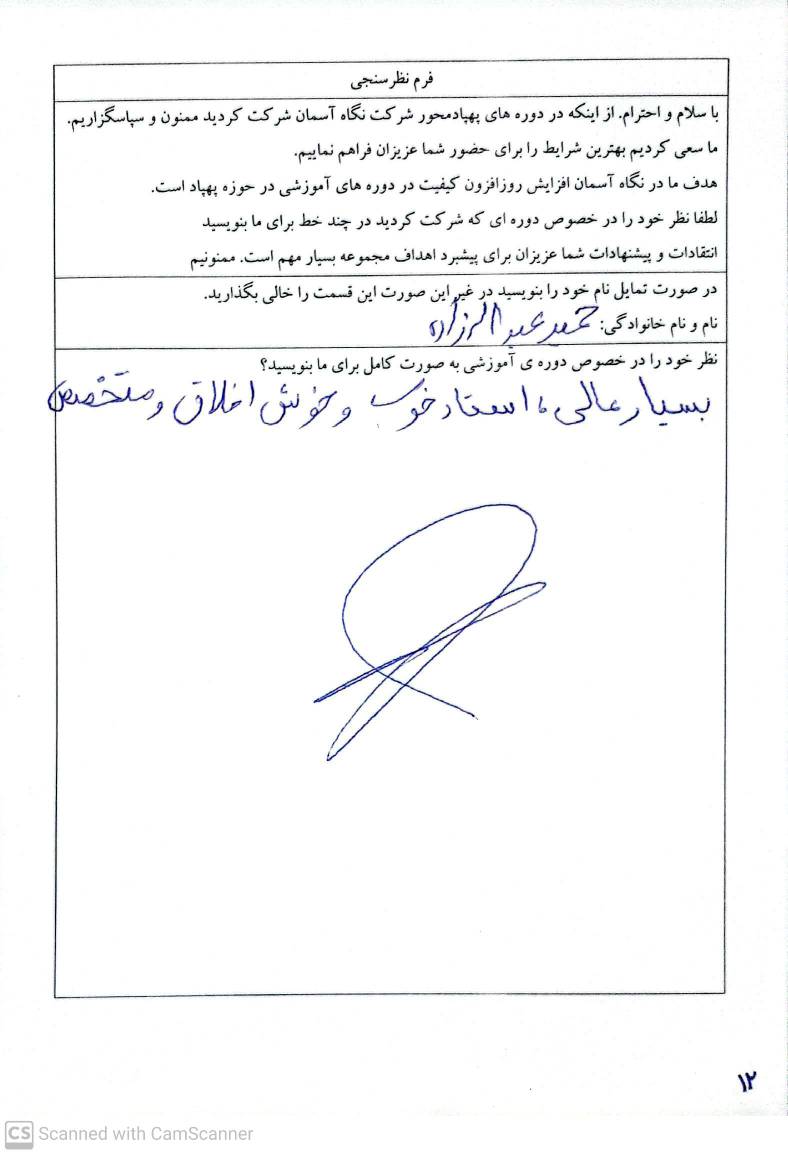 فرم نظرسنجی
با سلام و احترام. از اینکه در دوره های پهپادمحور شرکت نگاه آسمان شرکت کردید ممنون و سپاسگزاریم.
ما سعی کردیم بهترین شرایط را برای حضور شما عزیزان فراهم نماییم.
هدف ما در نگاه آسمان افزایش روزافزون کیفیت در دوره های آموزشی در حوزه پهپاد است.
لطفا نظر خود را در خصوص دوره ای که شرکت کردید در چند خط برای ما بنویسید
انتقادات و پیشنهادات شما عزیزان برای پیشبرد اهداف مجموعه بسیار مهم است. ممنونیم
در صورت تمایل نام خود را بنویسید در غیر این صورت این قسمت را خالی بگذارید.
نام و نام خانوادگی:
نظر خود را در خصوص دوره ی آموزشی به صورت کامل برای ما بنویسید؟
بسیار عالی، استاد خوب و خوش اخلاق و متخصص
۱۲
CS Scanned with CamScanner